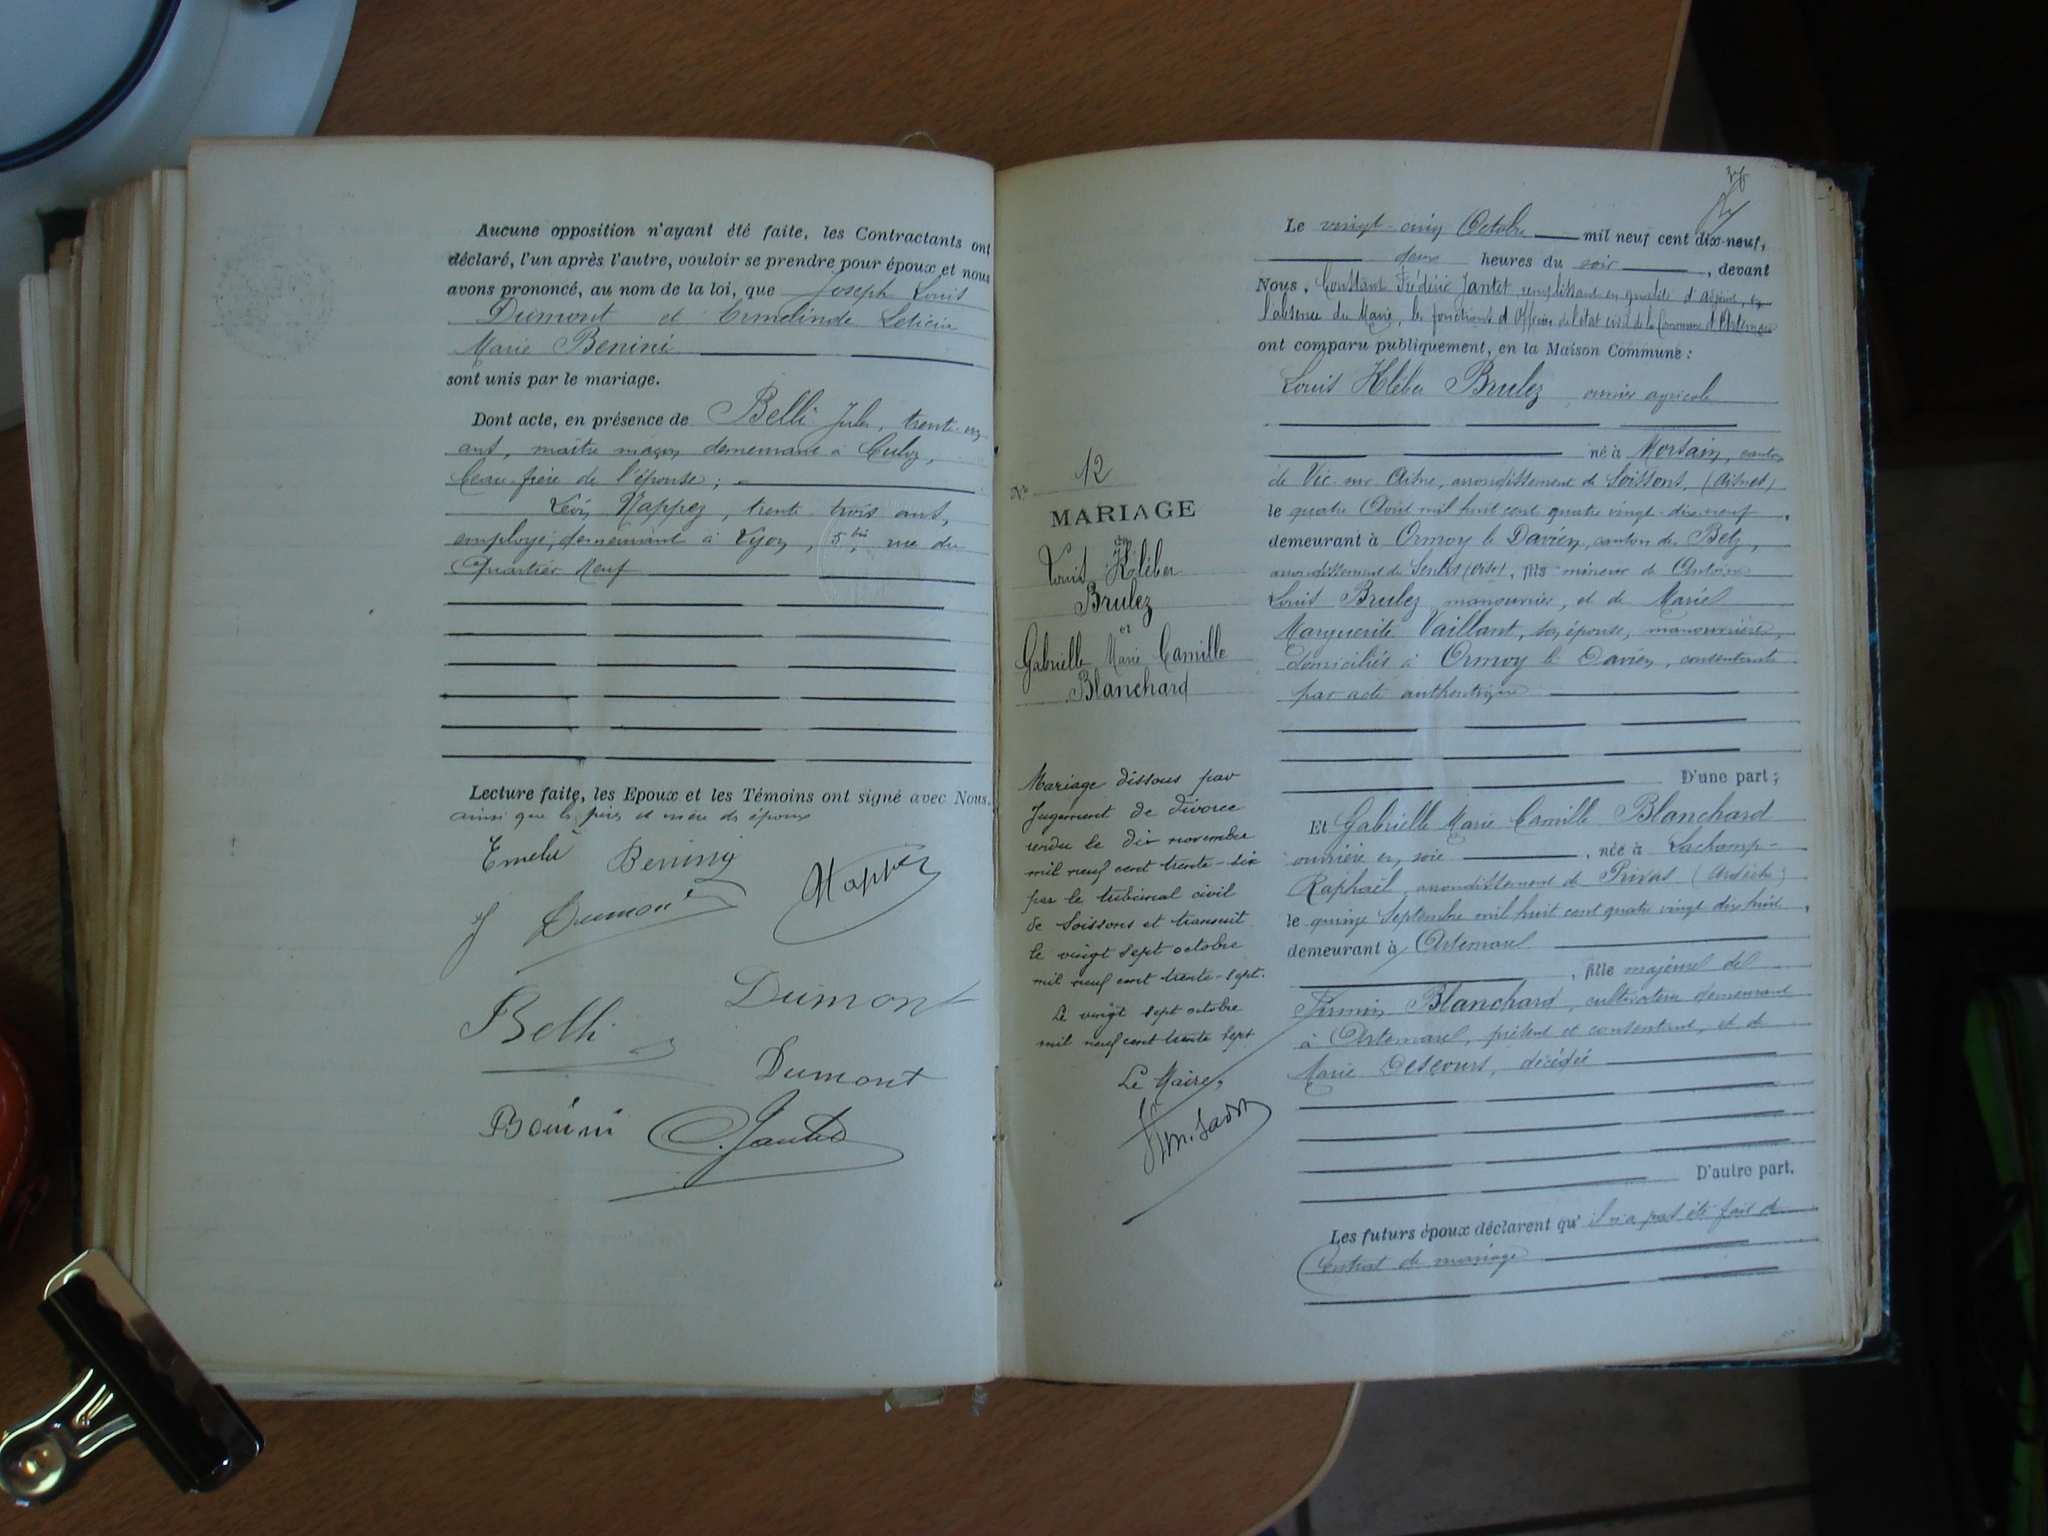 Aucune opposition n'ayant été faite, les Contractants ont
déclaré, l'un après l'autre, vouloir se prendre pour époux et nous
avons prononcé, au nom de la loi, que Joseph Louis
Dumont et Ermelinde Leticia
Marie Benini
sont unis par le mariage.
Dont acte, en présence de Belli Jules, trente-
ans, maître maçon demeurant à Culoz,
beau-frère de l'épouse ;
Léon Nappez, trente trois ans,
employé, demeurant à Lyon, 5 bis, rue du
Quartier Neuf
Lecture faite, les Epoux et les Témoins ont signé avec Nous.
ainsi que les pères et mère des époux
Benini
Nappez
J Dumont
Dumont
Belli
Dumont
Benini
C. Jantet
N° 12
MARIAGE
de
Louis Kléber
Brulez
et
Gabrielle Marie Camille
Blanchard
Mariage dissous par
Jugement de divorce
rendu le dix novembre
mil neuf cent trente-six
par le tribunal civil
de Soissons et transmit
le vingt sept octobre
mil neuf cent trente-sept.
Le vingt sept octobre
mil neuf cent trente sept
Le Maire,
Le vingt-cinq Octobre mil neuf cent dix-neuf,
deux heures du soir, devant
Nous, Constant Frédéric Jantet, remplissant en qualité d'adjoint, en
l'absence du Maire, les fonctions d'Officier de l'état civil de la Commune d'Artemare
ont comparu publiquement, en la Maison Commune :
Louis Kléber Brulez, ouvrier agricole
né à Morsain, canton
de Vic-sur-Aisne, arrondissement de Soissons, (Aisne)
le quatre Août mil huit cent quatre vingt-dix-neuf,
demeurant à Ormoy le Davien, canton de Betz,
arrondissement de Senlis (Oise), fils mineur de Antoine
Louis Brulez manouvrier, et de Marie
Marguerite Vaillant, son épouse, manouvrière,
domiciliés à Ormoy le Davien, consentants
par acte authentique
D'une part ;
Et Gabrielle Marie Camille Blanchard
ouvrière en soie, née à Lachamp-
Raphaël, arrondissement de Privas (Ardèche)
le quinze Septembre mil huit cent quatre vingt dix huit,
demeurant à Artemare
, fille majeure de
Firmin Blanchard, cultivateur demeurant
à Artemare, présent et consentant, et de
Marie Descours, décédée
D'autre part.
Les futurs époux déclarent qu' il n'a pas été fait de
Contrat de mariage